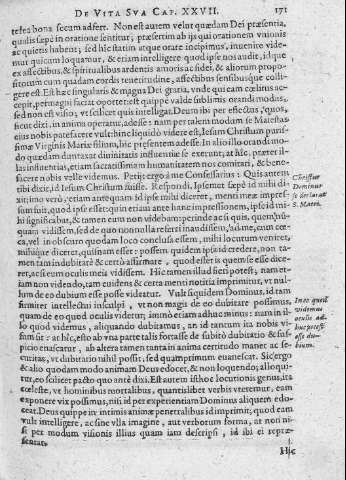 DE VITA SVA CAP. XXVII. 171
tesea bona secum adfert. Non est autem velut quædam Dei præsentia,
qualis sæpe in oratione sentitur, præsertim ab ijs qui orationem vnionis
ac quietis habent; sed hic statim atque orare incipimus, inuenire videmur
quicum loquamur, & etiam intelligere quod ipse nos audit, idque
ex affectibus, & spiritualibus ardentis amoris ac fidei, & aliorum propositorum
cum quadam cordis teneritudine, affectibus sensibusque colligere
est. Est hæc singularis & magna Dei gratia, vnde qui eam cœlitus accepit,
permagni faciat oportet: est quippe valde sublimis orandi modus,
sed non est visio, vt scilicet quis intelligat Deum ibi per effectus, quos,
sicut dixi, in animi operatur, adesse: nam per talem modum se Maiestas
eius nobis patefacere vult: hic liquidò videre est, Iesum Christum purissimæ
Virginis Mariæ filium, hic præsentem adesse. In alio illo orandi modo
quædam duntaxat diuinitatis influentiæ se exerunt, at hîc, præter illas
influentias, etiam sacratissimam humanitatem nos comitari, & benefacere
nobis velle videmus. Petijt ergo à me Confessarius: Quis autem
tibi dixit, id Iesum Christum fuisse. Respondi, Ipsemet sæpè id mihi dixit;
imo verò, etiam antequam id ipse mihi diceret, menti meæ impressum
fuit, quod ipse esset; quin etiam ante hanc impressionem, ipse id mihi
significabat, & tamen eum non videbam: perinde ac si quis, quem nusquam
vidissem, sed de quo nonnulla referri inaudissem, ad me, cum cæca,
vel in obscuro quodam loco conclusa essem, mihi locutum veniret,
mihique diceret, quisnam esset: possem quidem ipsi id credere, non tamen
tam indubitatè & certò affirmare, quod esset is quem se esse diceret,
ac si eum oculis meis vidissem. Hic tamen illud fieri potest; nam etiam
non videndo, tam euidens & certa menti notitia imprimitur, vt nullum
de eo dubium esse posse videatur. Vult siquidem Dominus, id tam
firmiter intellectui insculpi, vt non magis de eo dubitare possimus,
quam de eo quod oculis videtur; immò etiam adhuc minus: nam in illo
quod videmus, aliquando dubitamus, an id tantum ita nobis visum
sit: at hîc, esto ab vna parte tali fortasse de subitò dubitatio & suspicio
enascatur, ab altera tamen tanta in animo certitudo manet ac securitas,
vt dubitatio nihil possit, sed quamprimum euanescat. Sic ergo
& alio quodam modo animam Deus edocet, & non loquendo; alloquitur,
eo scilicet pacto quo ante dixi. Est autem isthoc locutionis genus, ita
cœleste, vt hominibus mortalibus, quantislibet verbis vtetemur, eam
exponere vix possimus, nisi id per experientiam Dominus aliquem edoceat.
Deus quippe in intimis animæ penetralibus id imprimit, quod eam
vult intelligere, ac sine vlla imagine, aut verborum forma, at non nisi
per modum visionis illius quam iam descripsi, id ibi ei repræsentat.
Hîc
Christus
Dominus
se declarat
S. Matri.
In eo quod
videmus
oculis adhuc
potest
esse dubium.